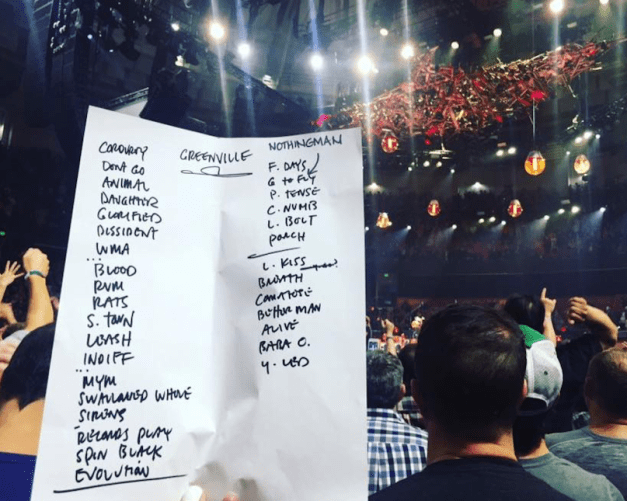 GREENVILLE
CORDUROY
DONT GO
ANIMAL
DAUGHTER
GLORIFIED
DISSIDENT
WMA
...
BLOOD
RVM
RATS
S. TOWN
LEASH
INDIFF
...
MYM
SWALLOWED WHOLE
SIRENS
RECORDS PLAY
SPIN BLACK
EVOLUTION
NOTHINGMAN
F. DAYS
G TO FLY
P. TENSE
C. NUMB
L. BOLT
PORCH
L. KISS
BREATH
COMATOSE
BETTER MAN
ALIVE
BABA O.
Y. LED